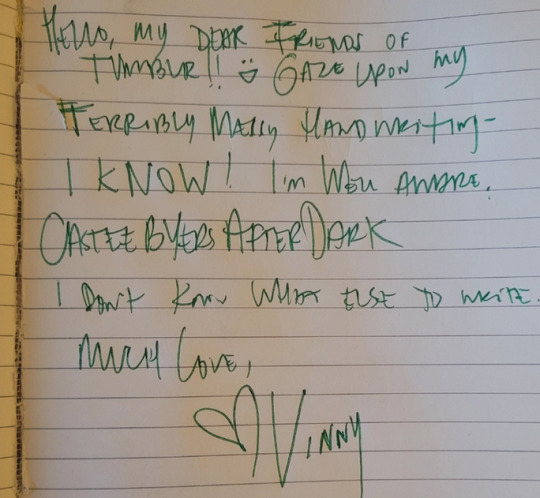 HELLO, MY DEAR FRIENDS OF
TUMBLR!! GAZE UPON MY
TERRIBLY MESSY HANDWRITING-
I KNOW! I'm WELL AWARE.
CASTLE BYERS AFTER DARK
I DON'T KNOW WHAT ELSE TO WRITE.
MUCH LOVE,
VINNY